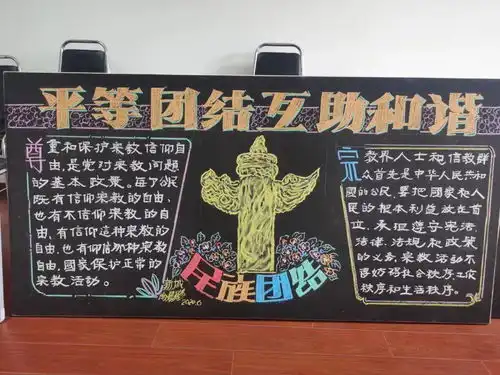 平等团结互助和谐
尊重和保护宗教信仰自
由,是党对宗教问题
的基本政策。每个公民
既有信仰宗教的自由,
也有不信仰宗教的自
由,有信仰这种宗教的
自由,也有信仰那种宗教
自由,國家保护正常的
宗教活动。
宗教界人士和信教群
众首先是中华人民共和
國的公民,要把國家和人
民的根本利益放在首
位,承担遵守宪法
法律、法规和政策
的义务,宗教活动不
得妨碍社会秩序、工作
秩序和生活秩序。
民族团结
2020.6